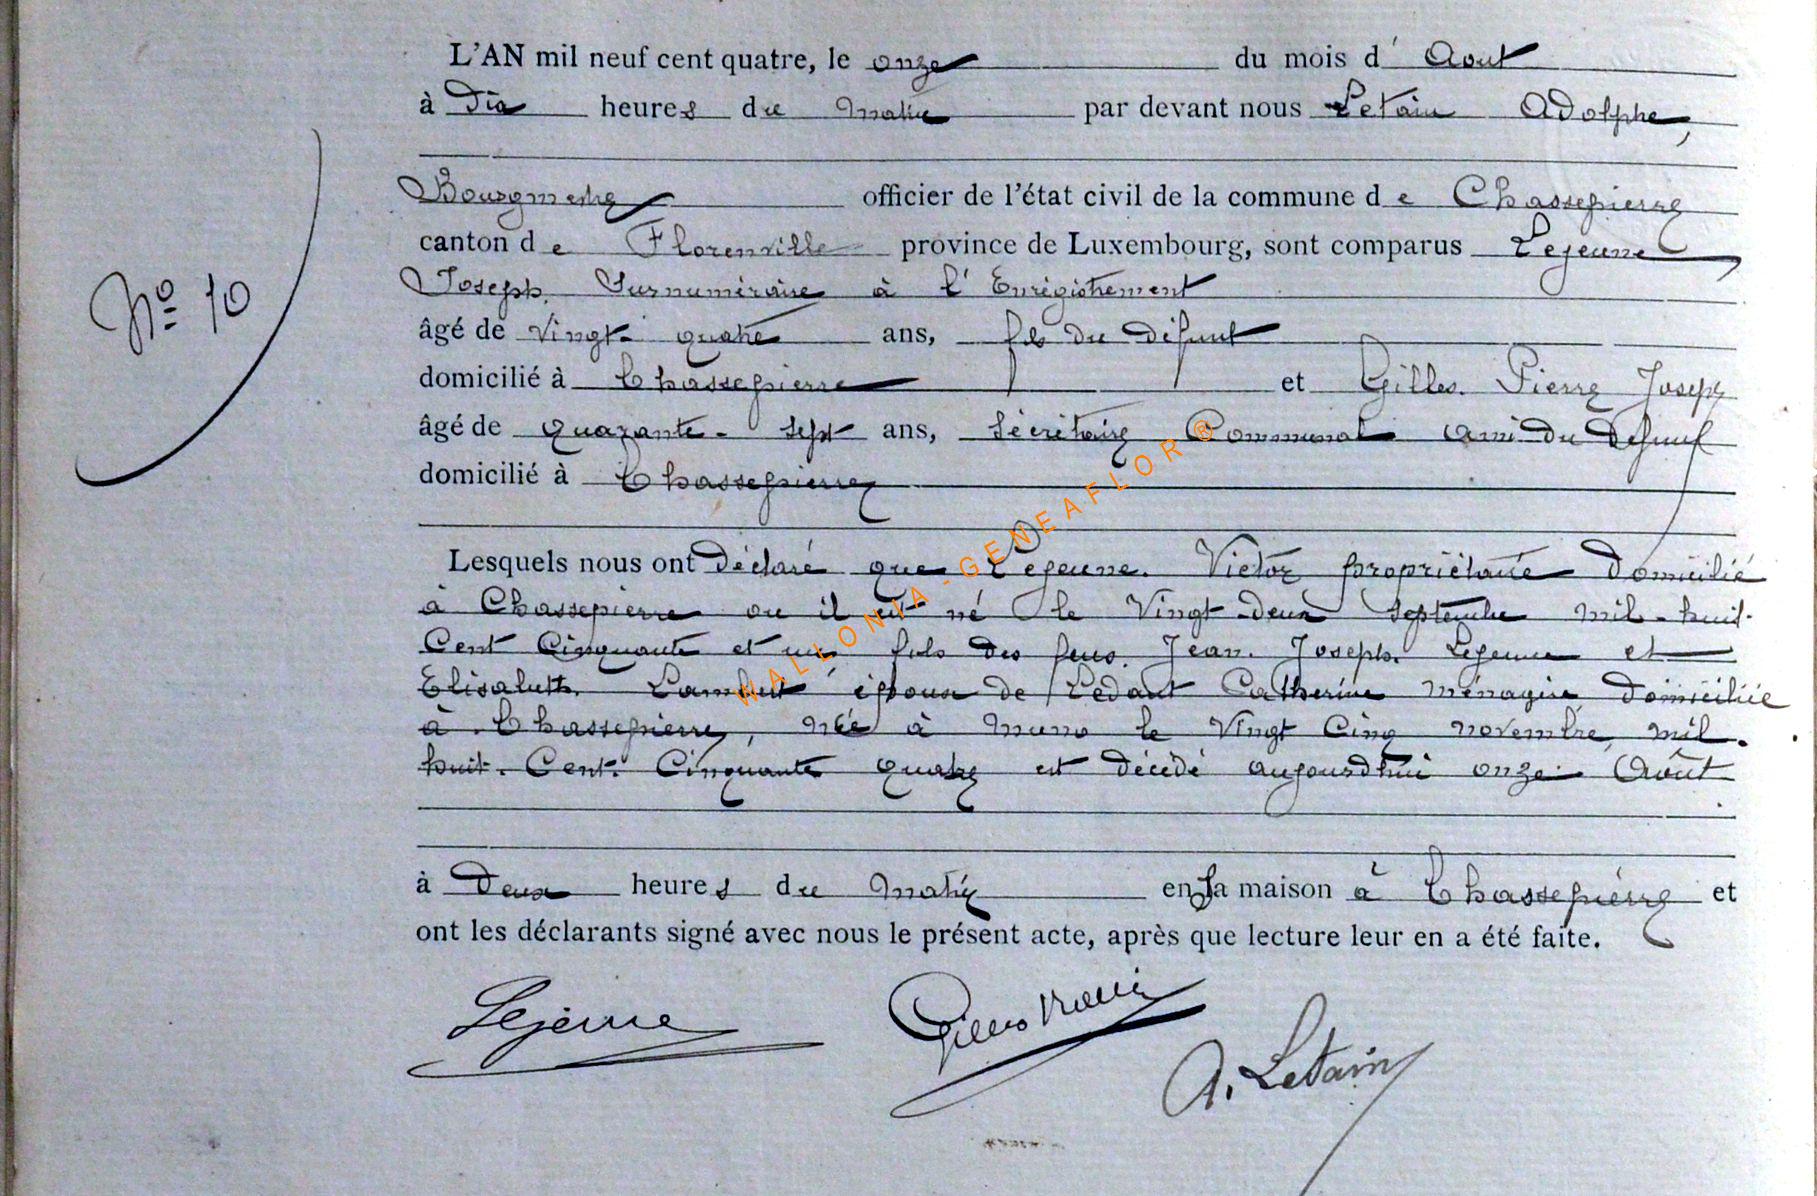 L'AN mil neuf cent quatre, le onze du mois d' Aout
à dix heures du matin par devant nous Letain Adolphe,
Bourgmestre officier de l'état civil de la commune de Chassepierre
canton de Florenville province de Luxembourg, sont comparus Lejeune
Joseph. Surnuméraire à l' Enrégistrement
N° 10
âgé de vingt-quatre ans, fils du défunt
domicilié à Chassepierre et Gilles. Pierre Joseph
âgé de quarante-sept ans, secrétaire Communal ami du défunt
domicilié à Chassepierre
Lesquels nous ont déclaré que Lejeune. Victor propriétaire domicilié
à Chassepierre ou il est né le vingt-deux septembre mil-huit-
Cent Cinquante et un fils des feus. Jean. Joseph. Lejeune et
Elisabeth. Lambert époux de Ledant Catherine ménagère domiciliée
à Chassepierre, née à Muno le vingt cinq novembre, mil.
huit. Cent. Cinquante quatre est décédé aujourdhui onze Août
à deux heures du matin en sa maison à Chassepierre et
ont les déclarants signé avec nous le présent acte, après que lecture leur en a été faite.
Lejeune
Gilles
A. Letain
WALLONIA-GENEAFLOR®